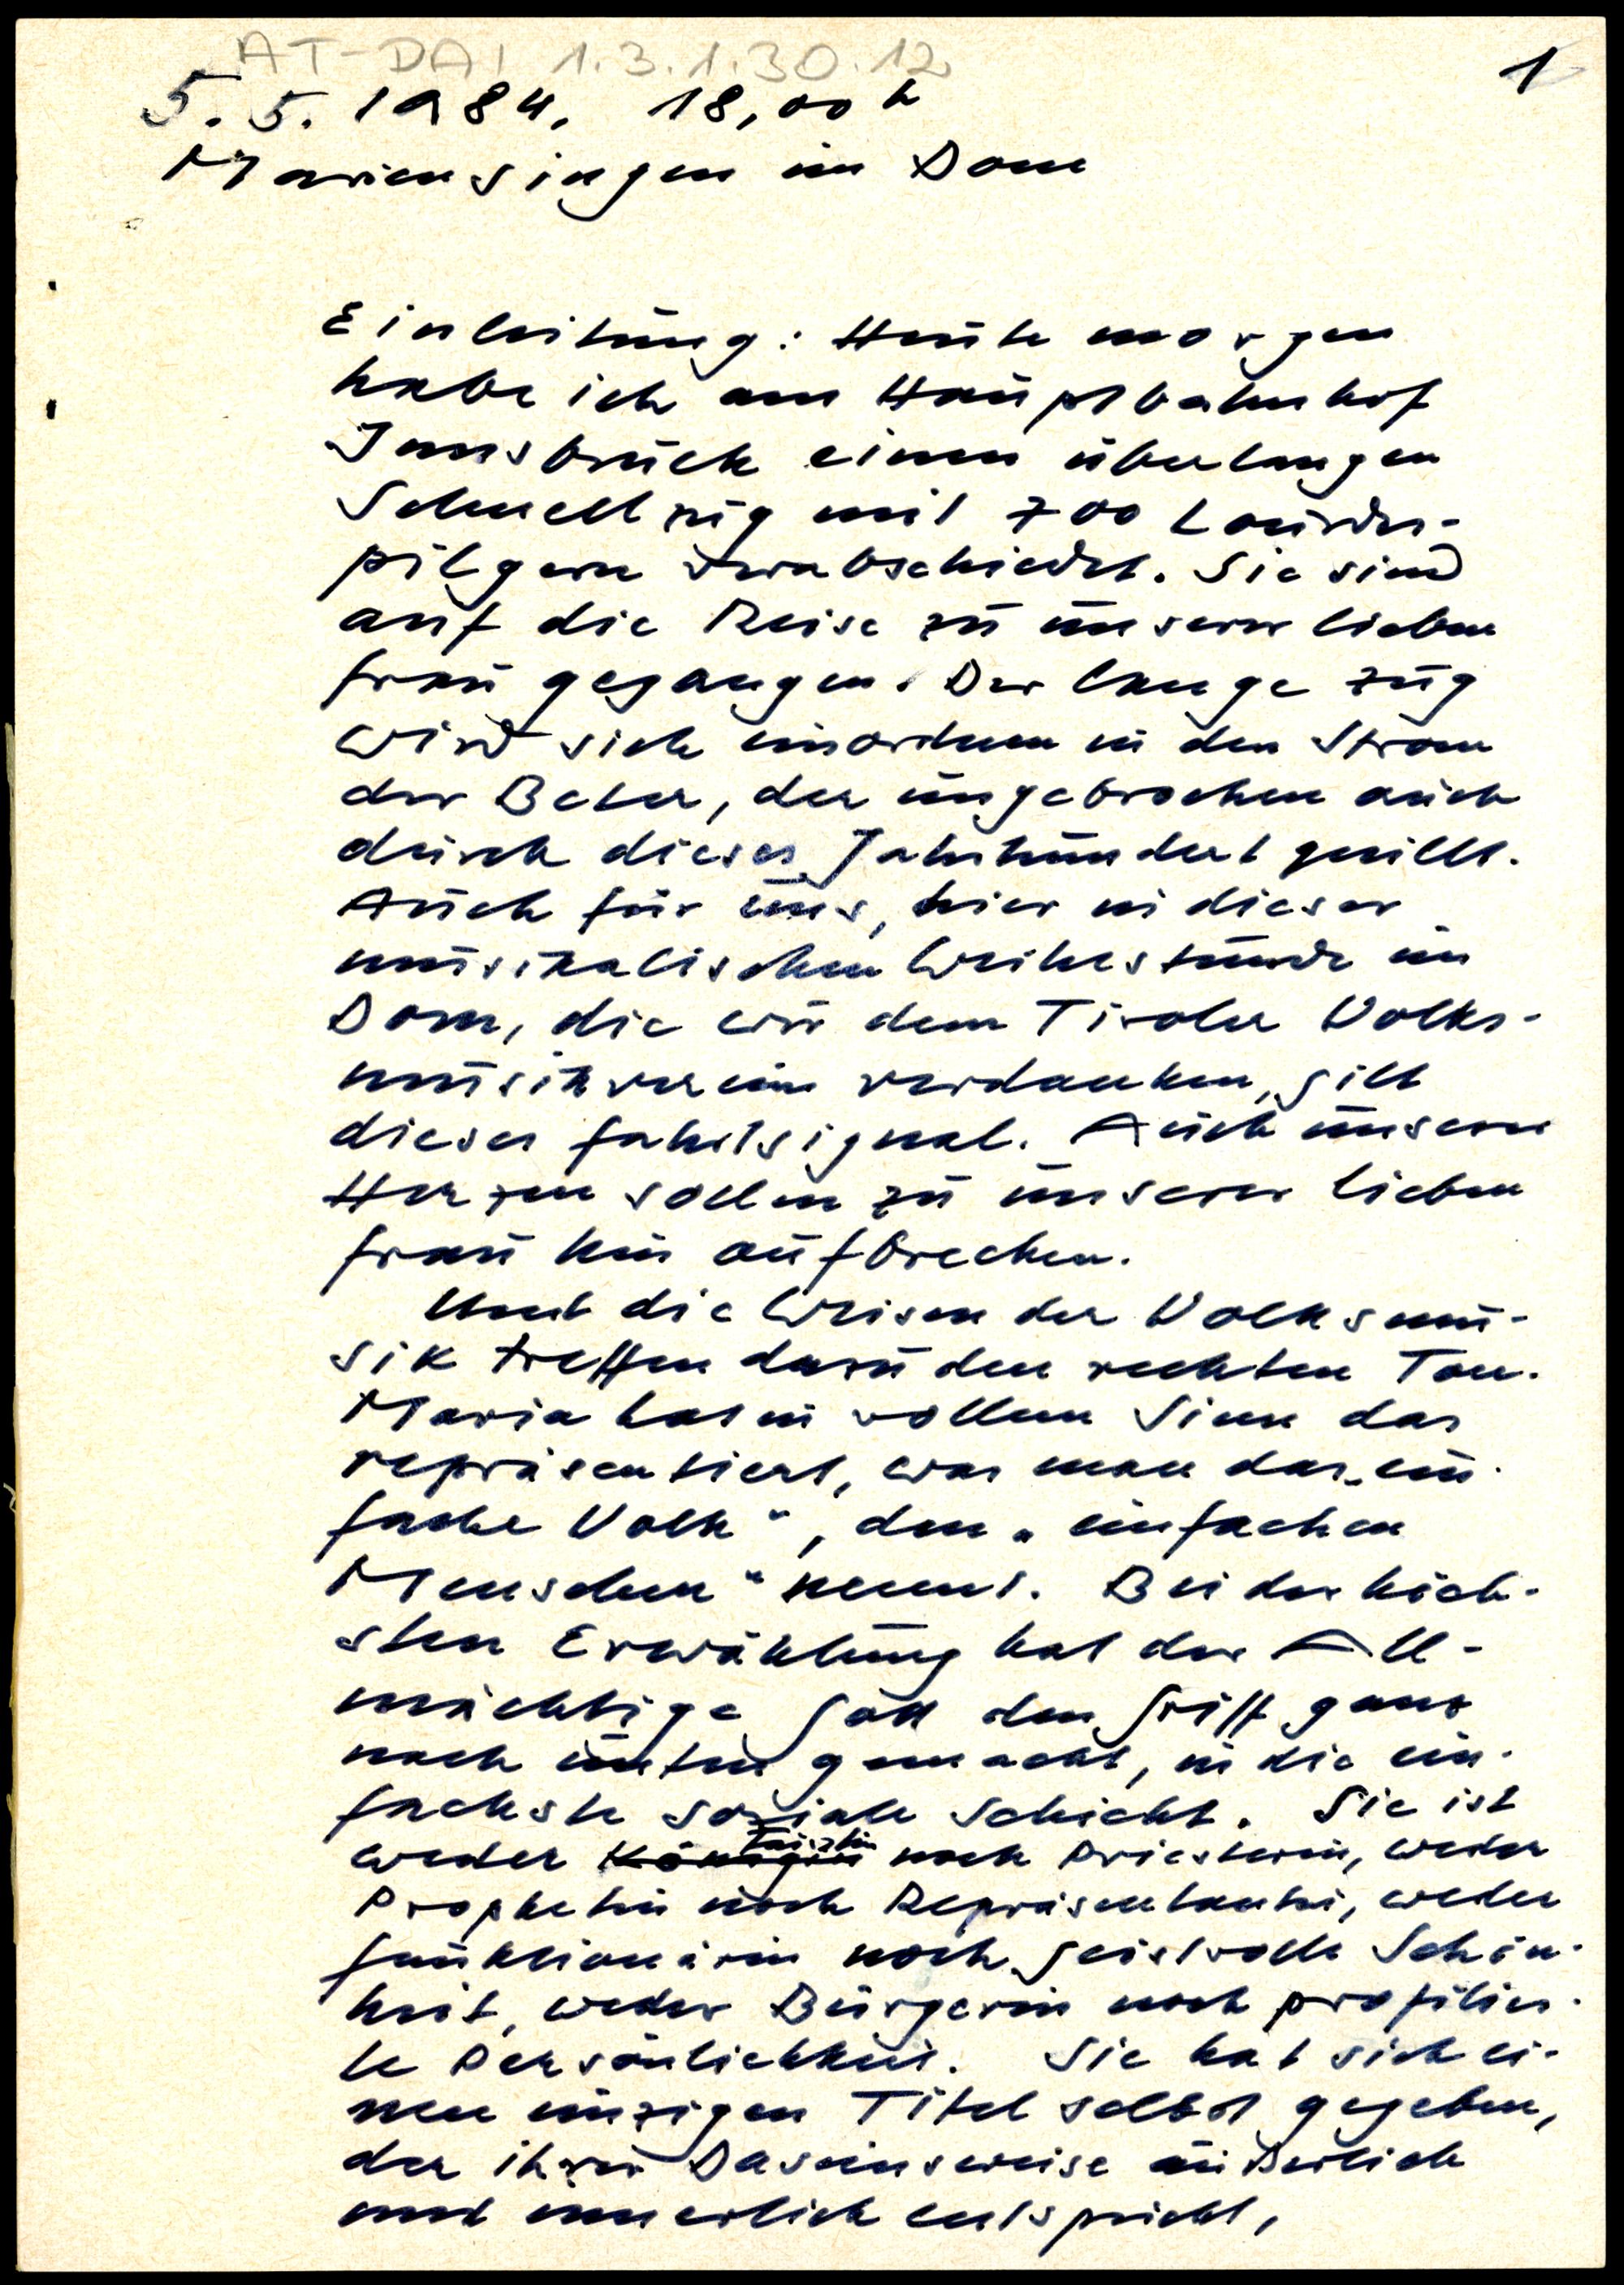 AT-DAI 1.3.1.30.12
1
5.5.1984, 18,00 h
Mariensingen im Dom
Einleitung: Heute morgen
habe ich am Hauptbahnhof
Innsbruck einen überlangen
Schnellzug mit 700 Lourdes-
pilgern verabschiedet. Sie sind
auf die Reise zu unserer lieben
Frau gegangen. Der lange Zug
wird sich einordnen in den Strom
der Beter, der ungebrochen auch
durch dieses Jahrhundert quillt.
Auch für uns, hier in dieser
musikalischen Weihestunde im
Dom, die wir dem Tiroler Volks-
musikverein verdanken, gilt
dieses Fahrtsignal. Auch unsere
Herzen sollen zu unserer lieben
Frau hin aufbrechen.
Und die Weisen der Volksmu-
sik treffen dazu den rechten Ton.
Maria hat in vollem Sinn das
repräsentiert, was man das „ein-
fache Volk“, den „einfachen
Menschen“ nennt. Bei der höch-
sten Erwählung hat der All-
mächtige Gott den Griff ganz
nach unten gemacht, in die ein-
fachste soziale Schicht. Sie ist
Fürstin
weder Königin noch Priesterin, weder
Prophetin noch Repräsentantin, weder
Funktionärin noch geistvolle Schön-
heit, weder Bürgerin noch profilier-
te Persönlichkeit. Sie hat sich ei-
nen einzigen Titel selbst gegeben,
der ihrer Daseinsweise äußerlich
und innerlich entspricht,